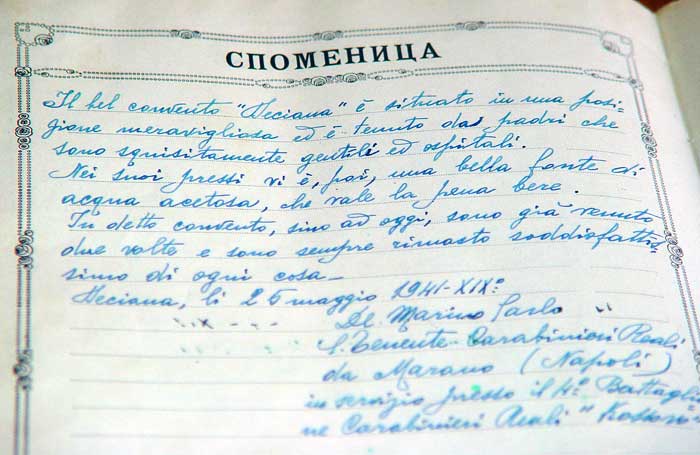 СПОМЕНИЦА
Il bel convento "Deciana" è situato in una posi-
zione meravigliosa ed è tenuto da padri che
sono squisitamente gentili ed ospitali.
Nei suoi pressi vi è, poi, una bella fonte di
acqua acetosa, che vale la pena bere.
In detto convento, sino ad oggi, sono già venuto
due volte e sono sempre rimasto soddisfattis-
simo di ogni cosa—
Deciana, li 25 maggio 1941-XIXº
De Marino Carlo
S. Tenente Carabinieri Reali
da Marano (Napoli)
in servizio presso il 4º Battaglio
ne Carabinieri Reali "